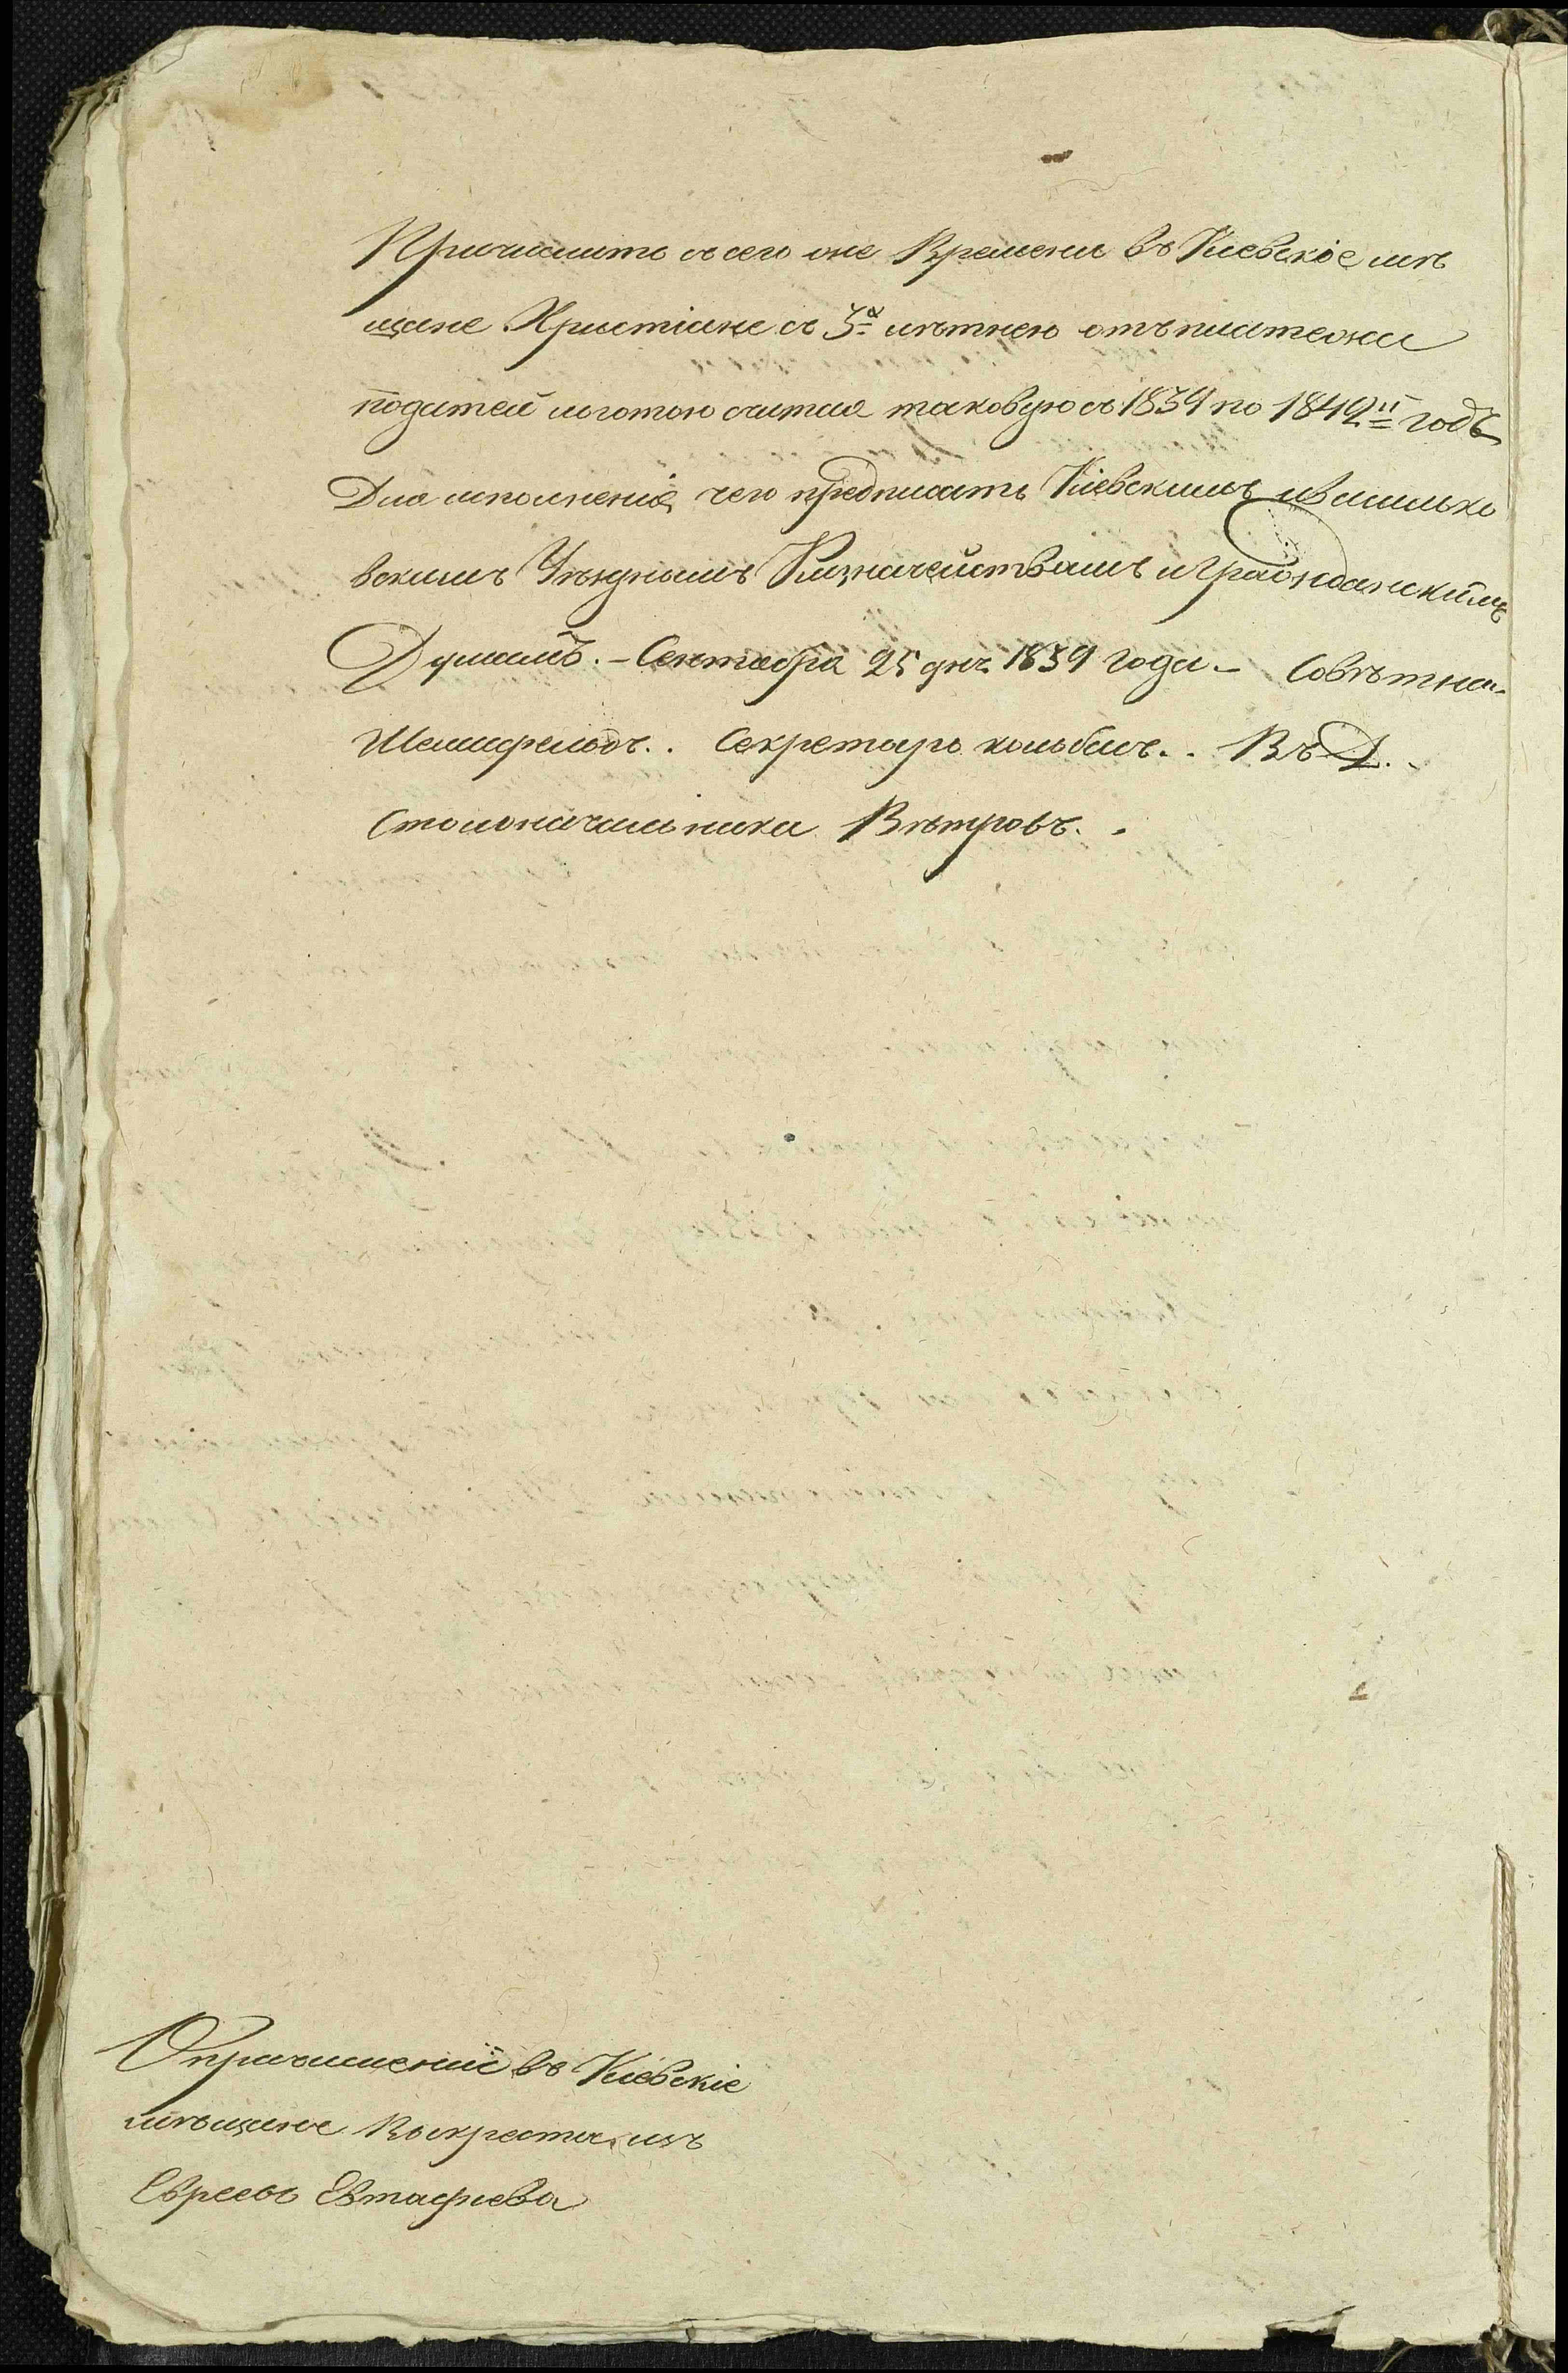 Причислить съ сего же Времени въ Киевскіе мѣ
щане Христіане съ 3<sup>х</sup> лѣтнею отъ платежа
податей льготою считая таковую съ 1839 по 1842<sup>й</sup> годъ
Для исполненія чего предписать Киевскимъ и Василько
вскимъ Уѣзднымъ Казначействамъ и Гражданскимъ
Думамъ. – Сентября 25 дня 1839 года. – Совѣтни.
Секретарь кольбасъ.. Въ Д..
Столоначальника Вѣтровъ..
О причисленіи въ Киевскіе
мѣщане Выкреста изъ
Евреевъ Евтафіева